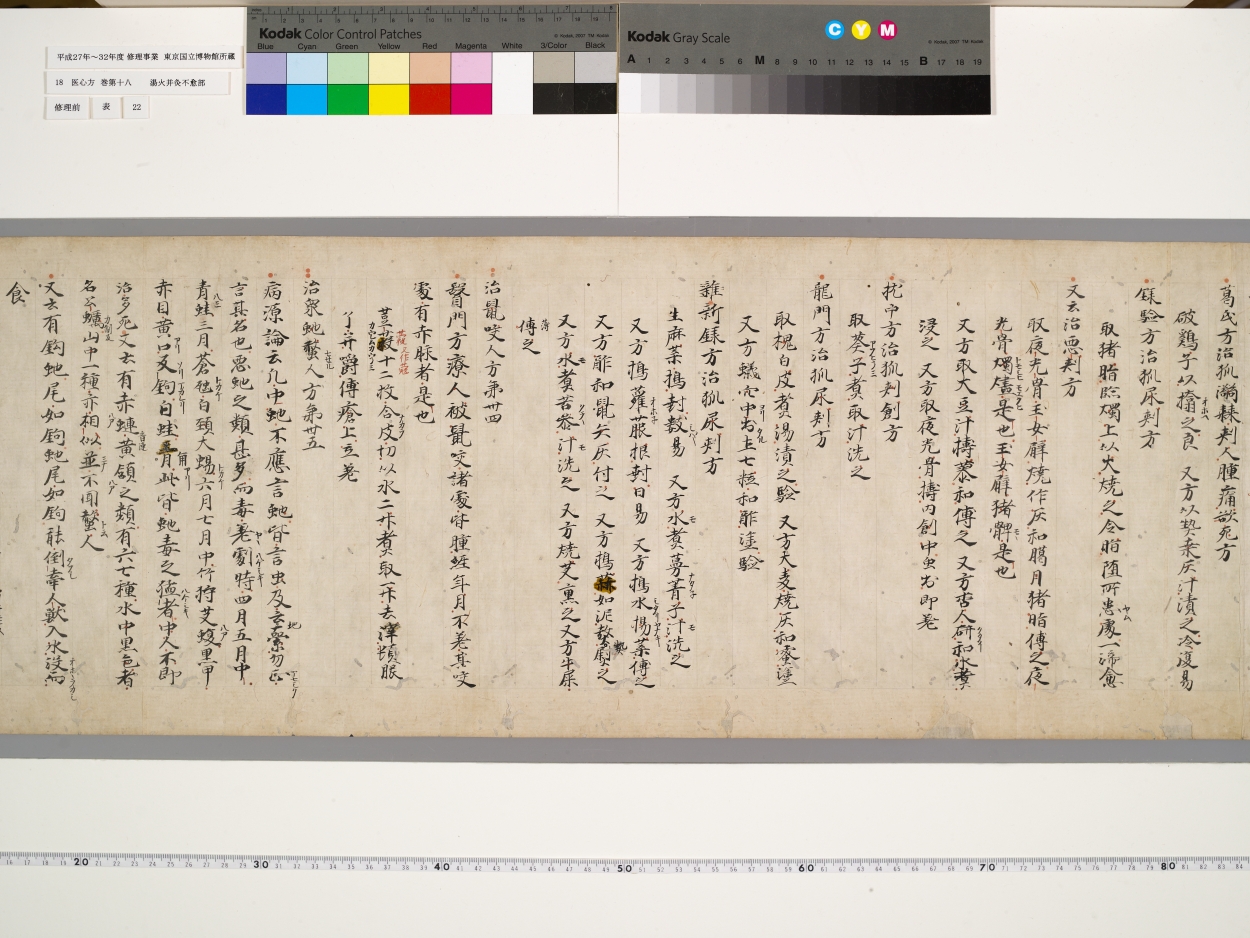 平成27年～32年度 修理事業 東京国立博物館所蔵
18 医心方 巻第十八 湯火并灸不愈部
修理前 表 22
Kodak Color Control Patches
Blue Cyan Green Yellow Red Magenta White 3/Color Black
© Kodak, 2007 TM: Kodak
Kodak Gray Scale
C Y M
A 1 2 3 4 5 6 M 8 9 10 11 12 13 14 15 B 17 18 19
葛氏方治狐尿棘刾人腫痛欲死方
破鶏子以搨之良 又方以熱桑灰汁漬之冷復易
録験方治狐尿刾方
取猪脂燭上以火焼之令脂堕所患處一渧愈
又云治悪刾方
取夜光骨玉女臂焼作灰和臈月猪脂傅之夜
光骨燭燼是也玉女臂猪髀是也
又方取大豆汁摶和傅之 又方杏人研和水煮
浸之 又方取夜光骨摶内創中虫出即差
枕中方治狐刾創方
取葵子煮取汁洗之
龍門方治狐尿刾方
取槐白皮煮湯漬之験 又方大麦焼灰和蜜塗
又方蟻穴中出土七粒和酢塗験
新録方治狐尿刾方
生麻葉搗封數易 又方水煮蔓菁子汁洗之
又方搗蘿菔根封日易 又方搗水楊葉傅之
又方酢和鼠矢灰付之 又方搗蒜如泥
又方水煮苦参汁洗之 又方焼艾熏之又方牛屎
傅之
治鼠咬人方第卅四
醫門方療人被鼠咬諸處皆腫経年月不差其咬
處有赤脉者是也
十二枚合皮切以水二升煮取一升去滓頓服
了并爵傅瘡上立差
治衆虵螫人方第卅五
病源論云凡中虵不應言虵皆言虫及云
言其名也悪虵之類甚多而毒差劇特四月五月中
青蛙三月蒼虺白頸大蝎六月七月中竹狩艾蝮黒甲
赤目黄口反鈎白蛙三月此皆虵毒之猛者中人不即
治多死又云有赤連黄頷之類有六七種水中黒色者
名公蠣山中一種亦相似並不聞螫人
又云有鈎虵尾如鈎虵尾如鈎能倒牽人獣入水没而
食
20 30 40 50 60 70 80